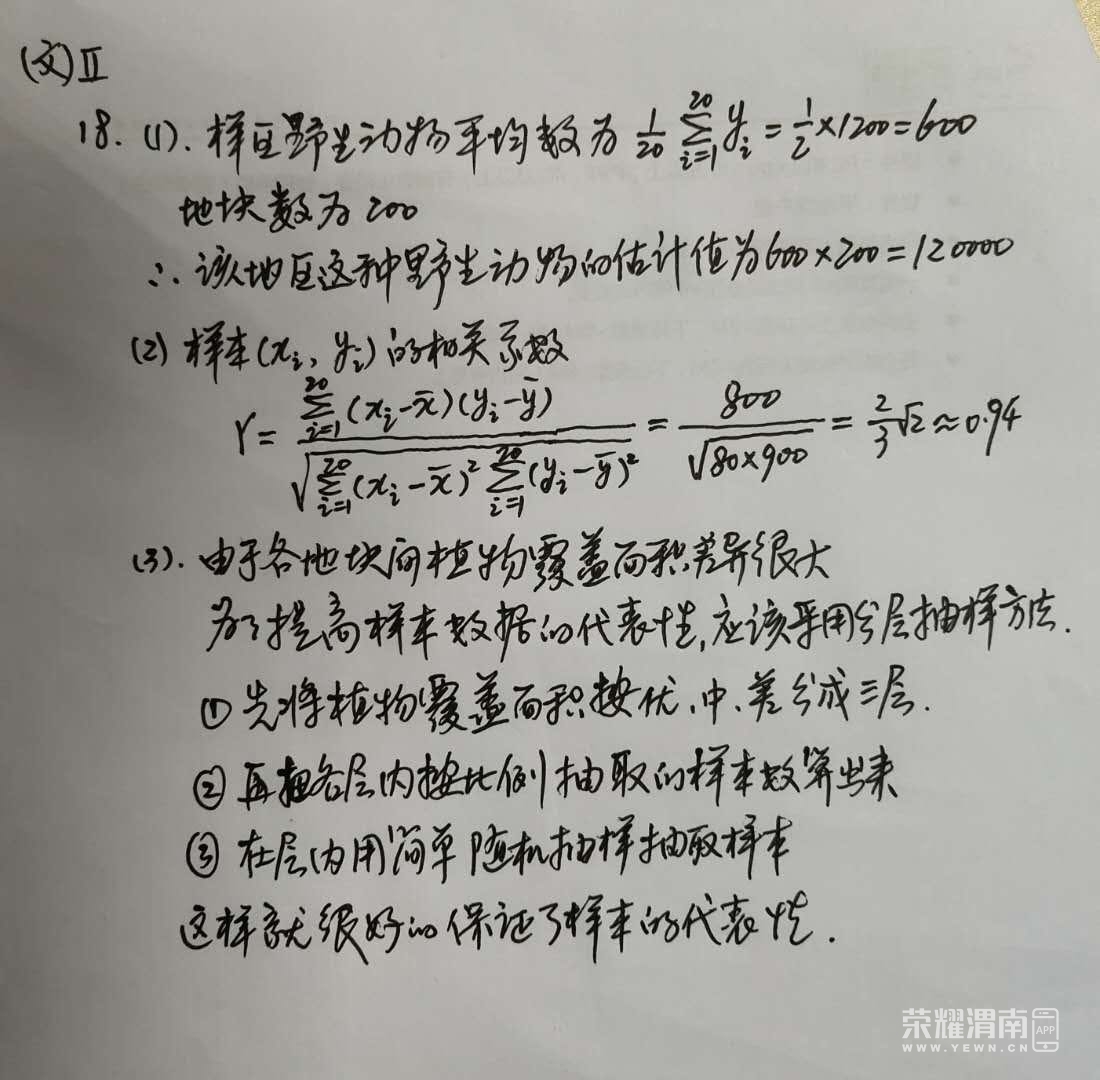 (文)Ⅱ
18. (1). 样区野生动物平均数为 \frac{1}{20} \sum_{i=1}^{20} y_i = \frac{1}{2}×1200=600
地块数为200
∴ 该地区这种野生动物的估计值为600×200=120000
(2) 样本(x_i, y_i)的相关系数
r = \frac{\sum_{i=1}^{20}(x_i-\bar{x})(y_i-\bar{y})}{\sqrt{\sum_{i=1}^{20}(x_i-\bar{x})^2 \sum_{i=1}^{20}(y_i-\bar{y})^2}} = \frac{800}{\sqrt{80×900}} = \frac{2}{3}\sqrt{2}≈0.94
(3). 由于各地块间植物覆盖面积差异很大
为了提高样本数据的代表性,应该采用分层抽样方法.
① 先将植物覆盖面积按优、中、差分成三层.
② 再把各层内按比例抽取的样本数算出来
③ 在层内用简单随机抽样抽取样本
这样就很好的保证了样本的代表性.
荣耀渭南 APP
WWW.YEWN.CN